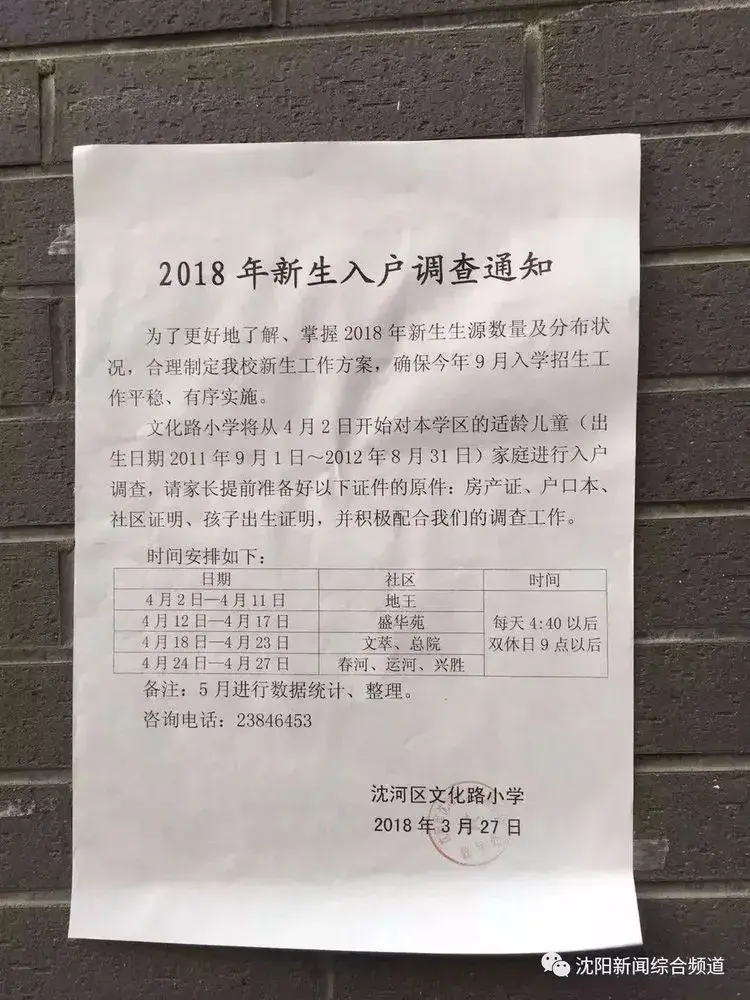 2018年新生入户调查通知
为了更好地了解、掌握2018年新生生源数量及分布状
况，合理制定我校新生工作方案，确保今年9月入学招生工
作平稳、有序实施。
文化路小学将从4月2日开始对本学区的适龄儿童（出
生日期2011年9月1日～2012年8月31日）家庭进行入户
调查，请家长提前准备好以下证件的原件：房产证、户口本、
社区证明、孩子出生证明，并积极配合我们的调查工作。
时间安排如下：
日期 社区 时间
4月2日—4月11日 地王
4月12日—4月17日 盛华苑 每天4:40以后
4月18日—4月23日 文萃、总院 双休日9点以后
4月24日—4月27日 春河、运河、兴胜
备注：5月进行数据统计、整理。
咨询电话：23846453
沈河区文化路小学
2018年3月27日
沈阳新闻综合频道